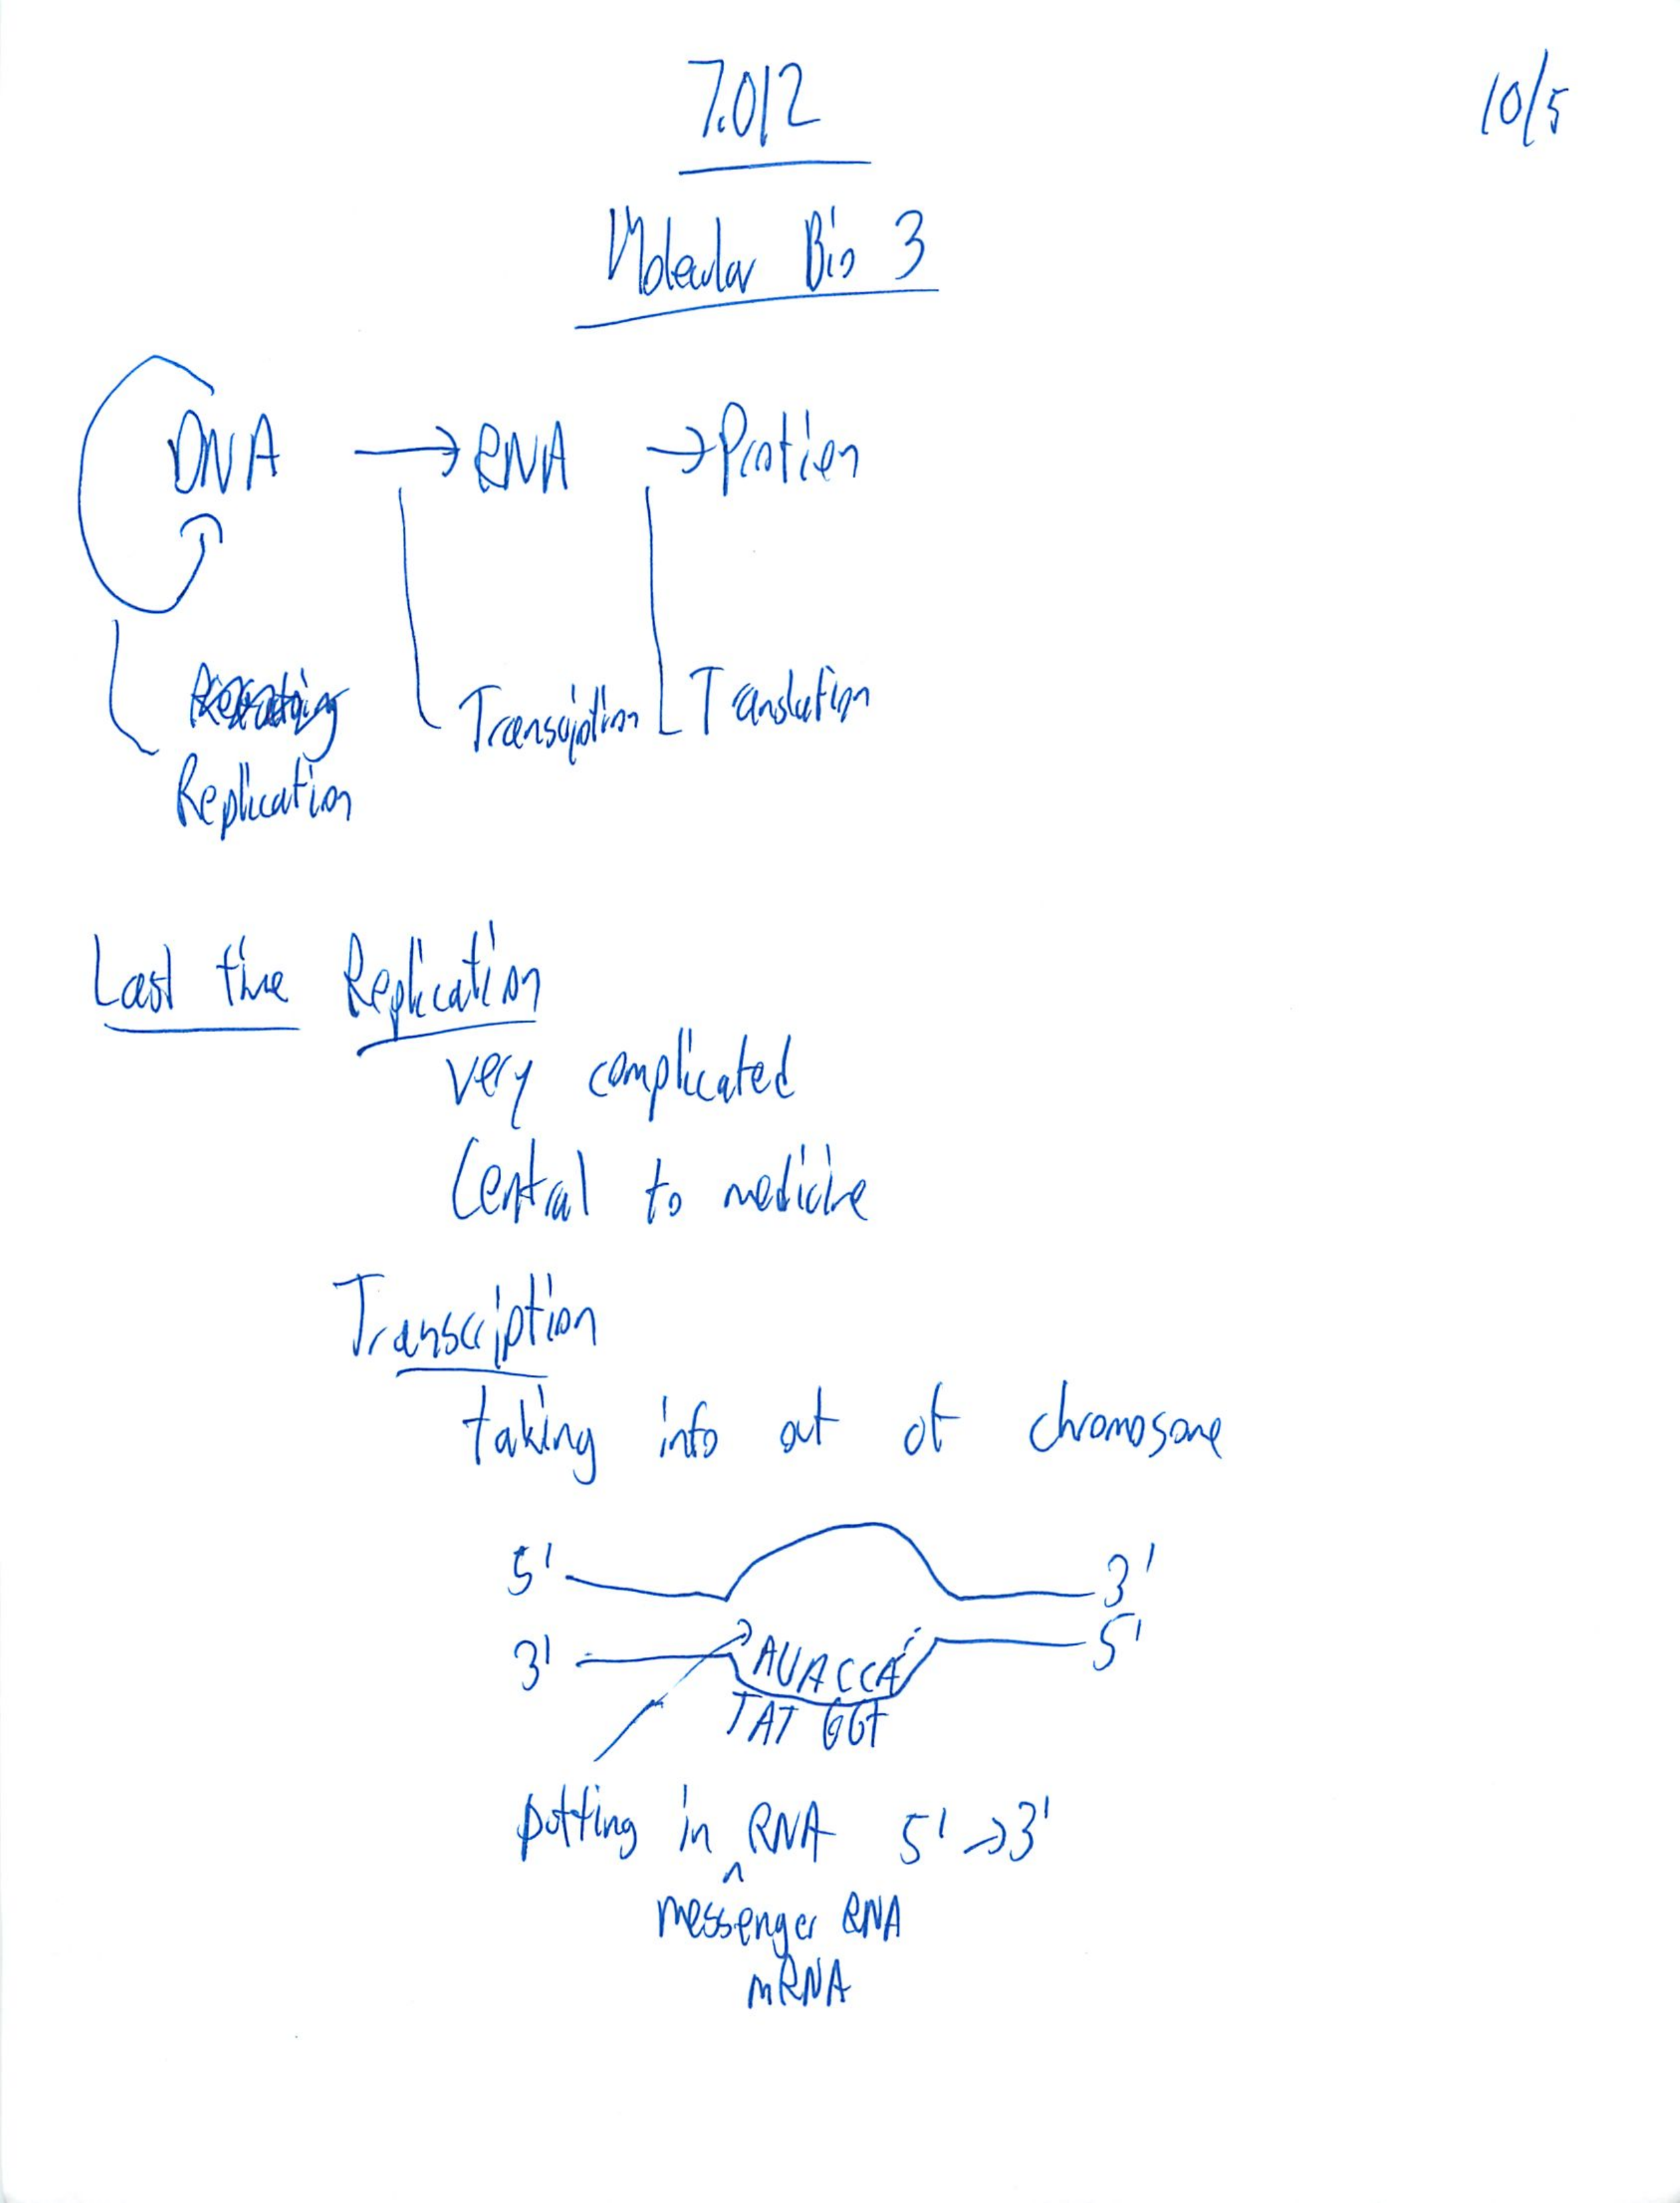 7.012
10/5
Molecular Bio 3
DNA → RNA → Protien
Transcription Translation
Replication
Last time Replication
very complicated
Central to medicine
Transcription
taking info out of chromosome
5' 3'
3' AUACCA 5'
TAT GGT
putting in RNA 5' → 3'
^
messenger RNA
mRNA